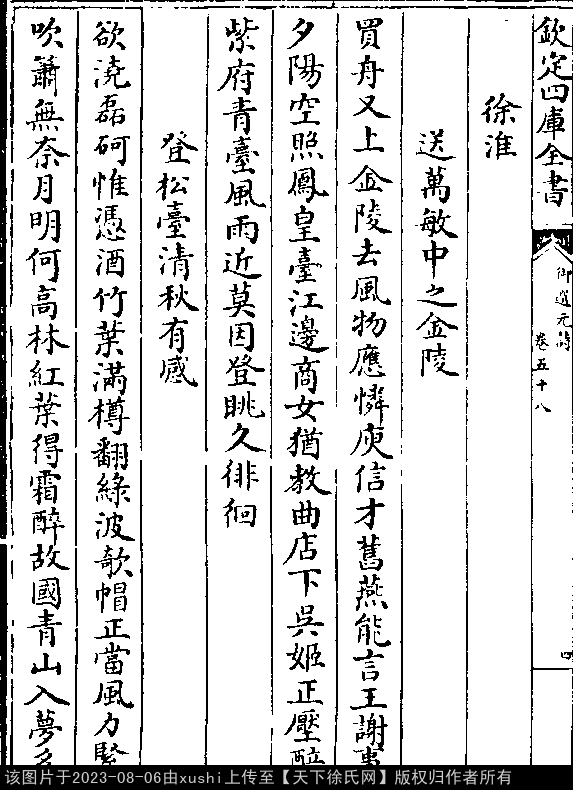 欽定四庫全書
御選元詩
卷五十八
四
徐淮
送萬敏中之金陵
買舟又上金陵去風物應憐庾信才舊燕能言王謝事
夕陽空照鳳皇臺江邊商女猶教曲店下吳姬正壓醅
紫府青臺風雨近莫因登眺久徘徊
登松臺清秋有感
欲澆磊砢惟憑酒竹葉滿樽翻綠波欹帽正當風力緊
吹簫無奈月明何高林紅葉得霜醉故國青山入夢多
该图片于2023-08-06由xushi上传至【天下徐氏网】版权归作者所有